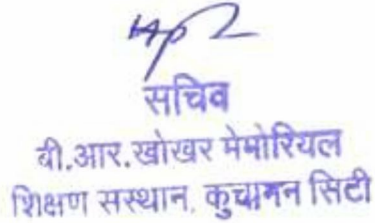 सचिव
बी.आर.खोखर मेमोरियल
शिक्षण संस्थान, कुचामन सिटी